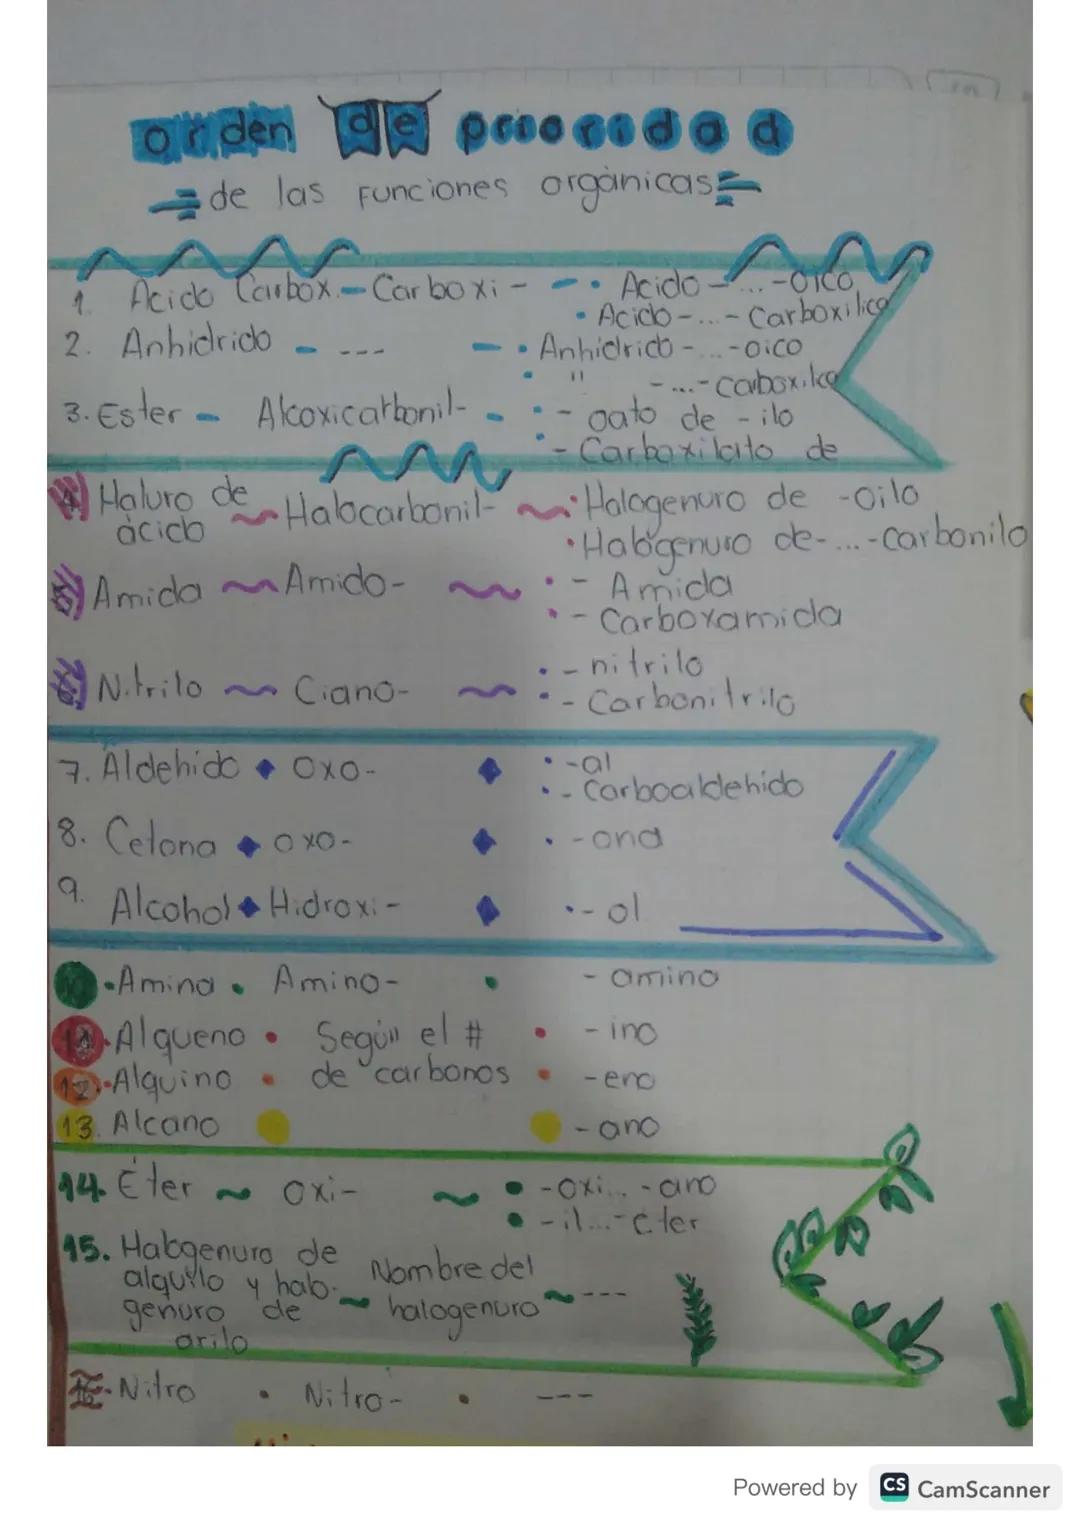 orden de prioridad
de las Funciones orgànicas
1. Acido Carbox. - Carboxi - - • Acido - ... -oico
• Acido - ... - Carboxilico
2. Anhidrido - --- - • Anhidrico - ... -oico
• " - ... - Carboxilico
3. Ester - Alcoxicarbonil- - • - oato de - ilo
• - Carboxilato de
4) Haluro de ácido ~ Halocarbonil- ~ • Halogenuro de -oilo
• Halogenuro de - ... -carbonilo
5) Amida ~ Amido- ~ • - Amida
• - Carboxamida
6) Nitrilo ~ Ciano- ~ • - nitrilo
• - Carbonitrilo
7. Aldehido ◆ Oxo- ◆ • -al
• - Carboaldehido
8. Cetona ◆ oxo- ◆ • -ona
9. Alcohol ◆ Hidroxi- ◆ • - ol
10 • Amina • Amino- • - amino
11 • Alqueno • Según el # • - ino
12 • Alquino • de carbonos • -eno
13. Alcano - ano
14. Éter ~ oxi- ~ • -oxi... -ano
• - il...-éter
15. Halogenuro de
alquilo y halo-
genuro de
arilo ~ Nombre del
halogenuro ~ ---
16 - Nitro • Nitro - • ---
Powered by CS CamScanner